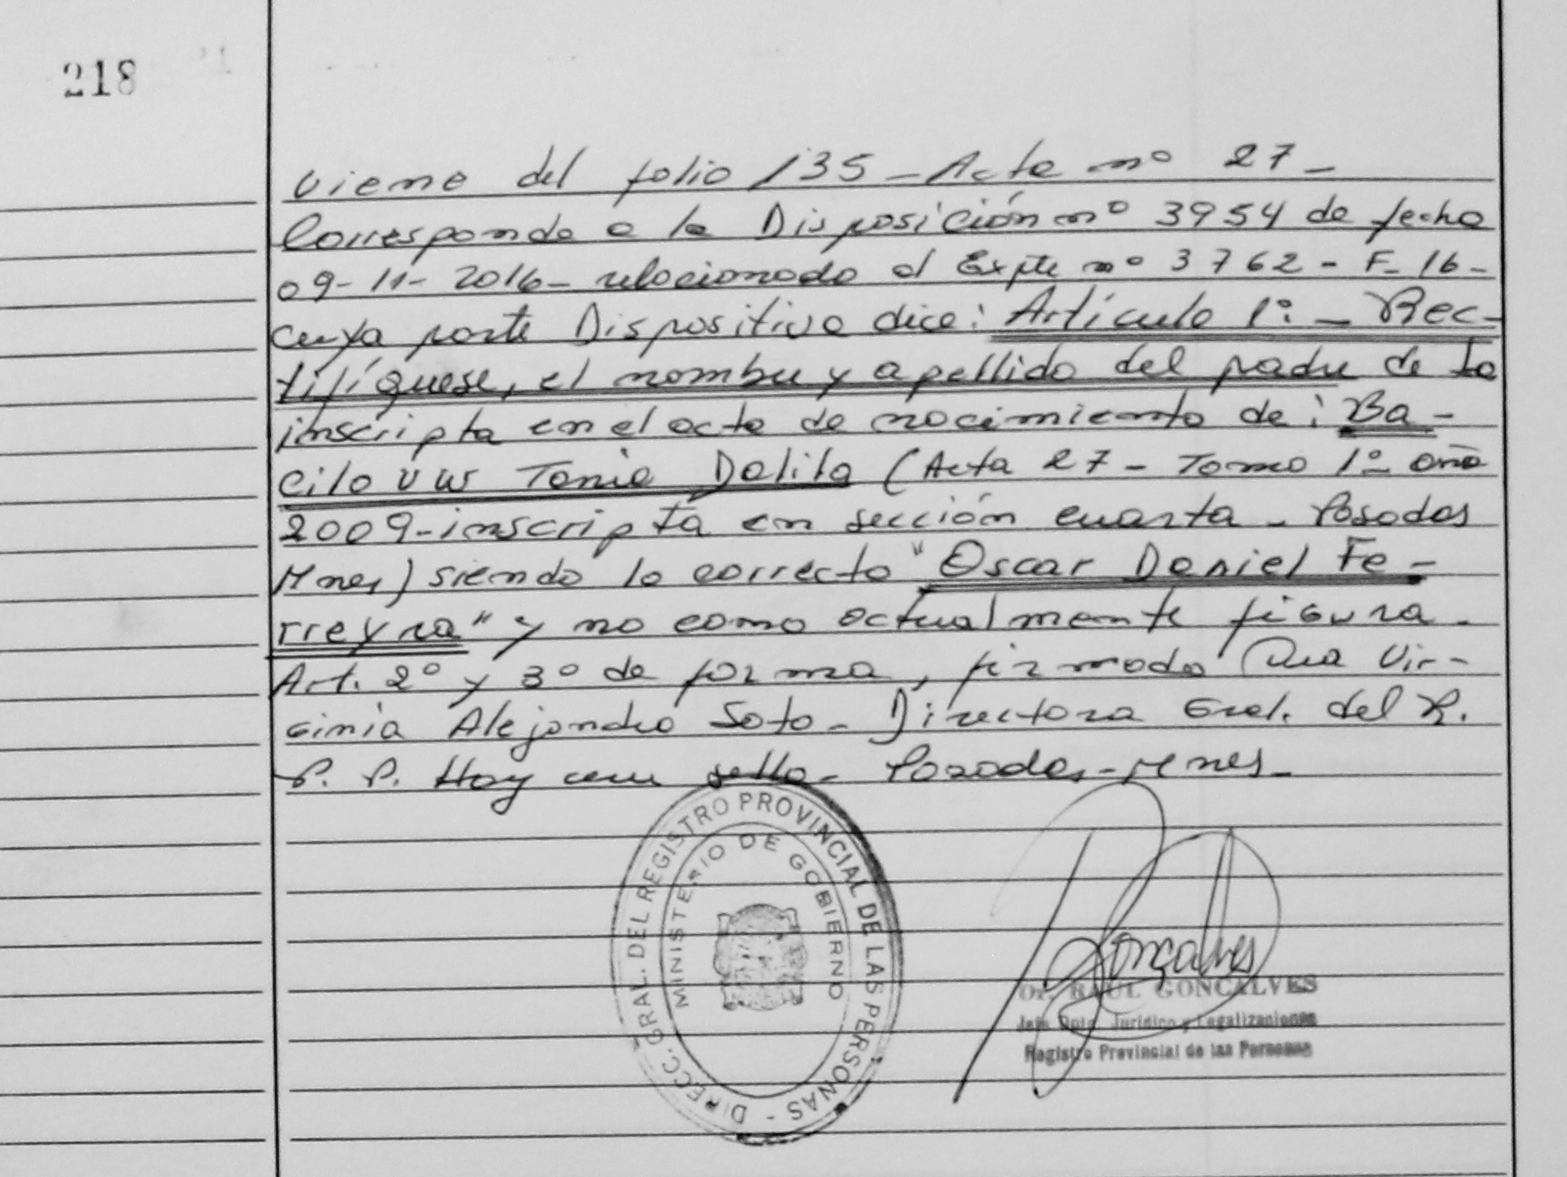 218
Viene del folio 135 - Acta nº 27 -
Corresponde a la Disposición nº 3954 de fecha
09-11-2016 - relacionado al Expte nº 3762 - F - 16 -
cuya parte Dispositiva dice: Artículo 1º: - Rec-
tifíquese, el nombre y apellido del padre de la
inscripta en el acta de nacimiento de: Ba-
Tania Dalila (Acta 27 - Tomo 1º - año
2009 - inscripta en sección cuarta - Posadas
Mnes) siendo lo correcto "Oscar Daniel Fe-
rreyra" y no como actualmente figura.
Art. 2º y 3º de forma, firmado Dra Vir-
ginia Alejandra Soto - Directora Gral. del R.
P. P. Hay un sello - Posadas - Mnes -
DIRECC. GRAL. DEL REGISTRO PROVINCIAL DE LAS PERSONAS -
MINISTERIO DE GOBIERNO
Gonçalves
Dr. RAUL GONCALVES
Jefe Dpto. Jurídico y Legalizaciones
Registro Provincial de las Personas